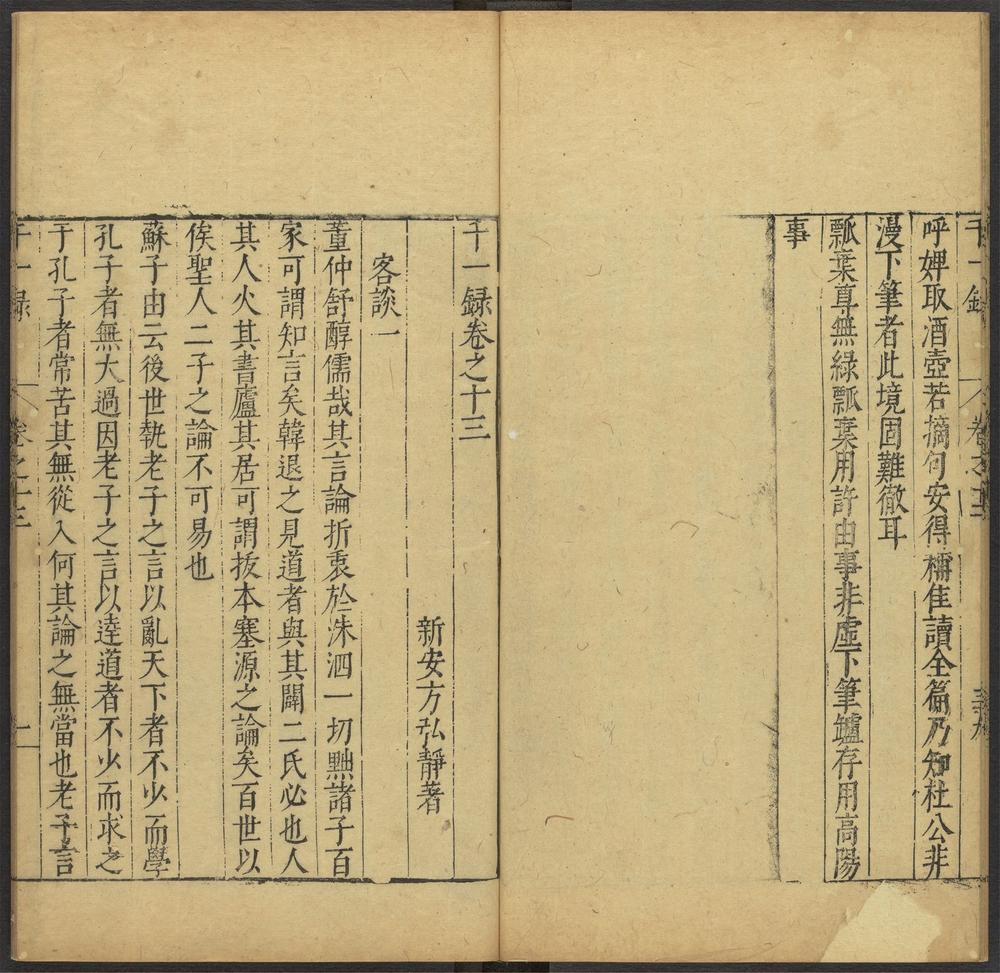 千一錄 卷之十二
呼婢取酒壺若摘句安得稱佳讀全篇乃知杜公非
漫下筆者此境固難徹耳
瓢棄尊無綠瓢棄用許由事非虛下筆鑪存用高陽
事
千一録卷之十三
新安方弘靜著
客談一
董仲舒醇儒哉其言論折衷於洙泗一切黜諸子百
家可謂知言矣韓退之見道者與其闢二氏必也人
其人火其書廬其居可謂拔本塞源之論矣百世以
俟聖人二子之論不可易也
蘇子由云後世執老子之言以亂天下者不少而學
孔子者無大過因老子之言以達道者不少而求之
于孔子者常苦其無從入何其論之無當也老子言
千一録 卷之十三 一